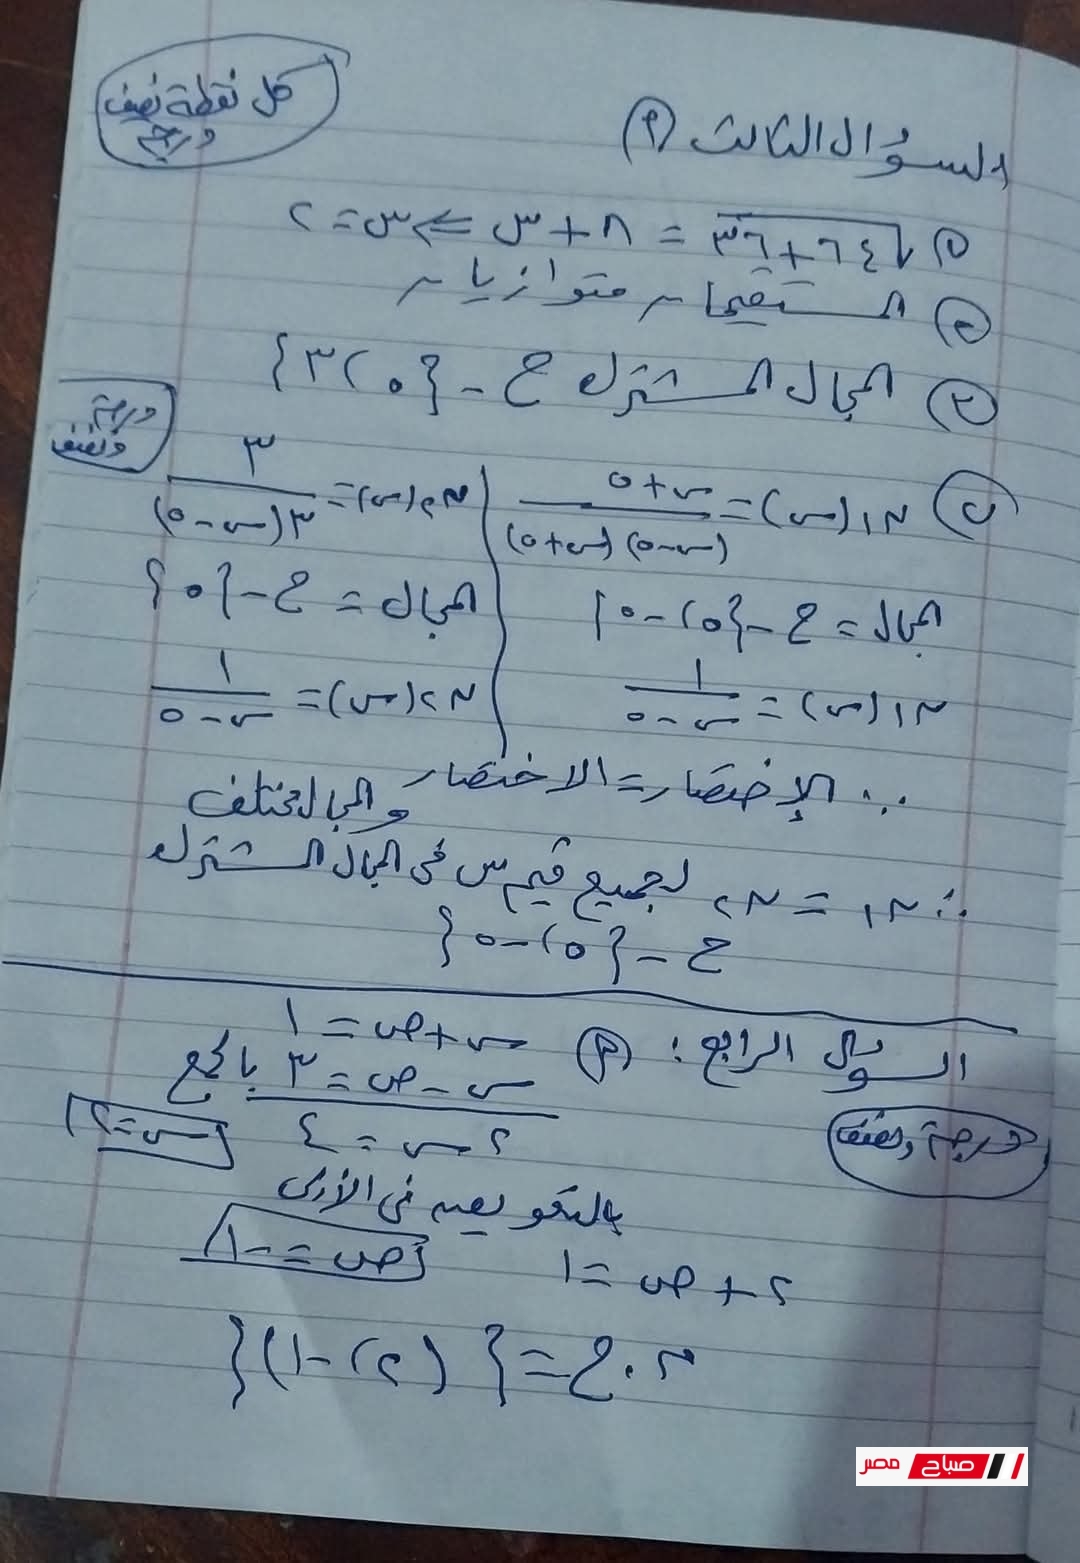 كل نقطة نصف درجة
السؤال الثالث (٣)
① √٦٤+٣٦ = ٨ + س ⇐ س = ٢
② المستقيمان متوازيان
③ المجال المشترك ح - {٠، ٣}
درجة ونصف
ب) ن١(س) = س+٥ / (س-٥)(س+٥)
المجال = ح - {٥، -٥}
ن١(س) = ١ / س-٥
ن٢(س) = ٣ / ٣(س-٥)
المجال = ح - {٥}
ن٢(س) = ١ / س-٥
∵ الإختصار = الاختصار والمجال مختلف
∴ ن١ = ن٢ لجميع قيم س فى المجال المشترك
ح - {٥، -٥}
السؤال الرابع: (٣)
درجة ونصف
س + ص = ١
س - ص = ٣ بالجمع
٢س = ٤
س = ٢
بالتعويض فى الأولى
٢ + ص = ١
ص = -١
م.ح = {(٢، -١)}
صباح مصر